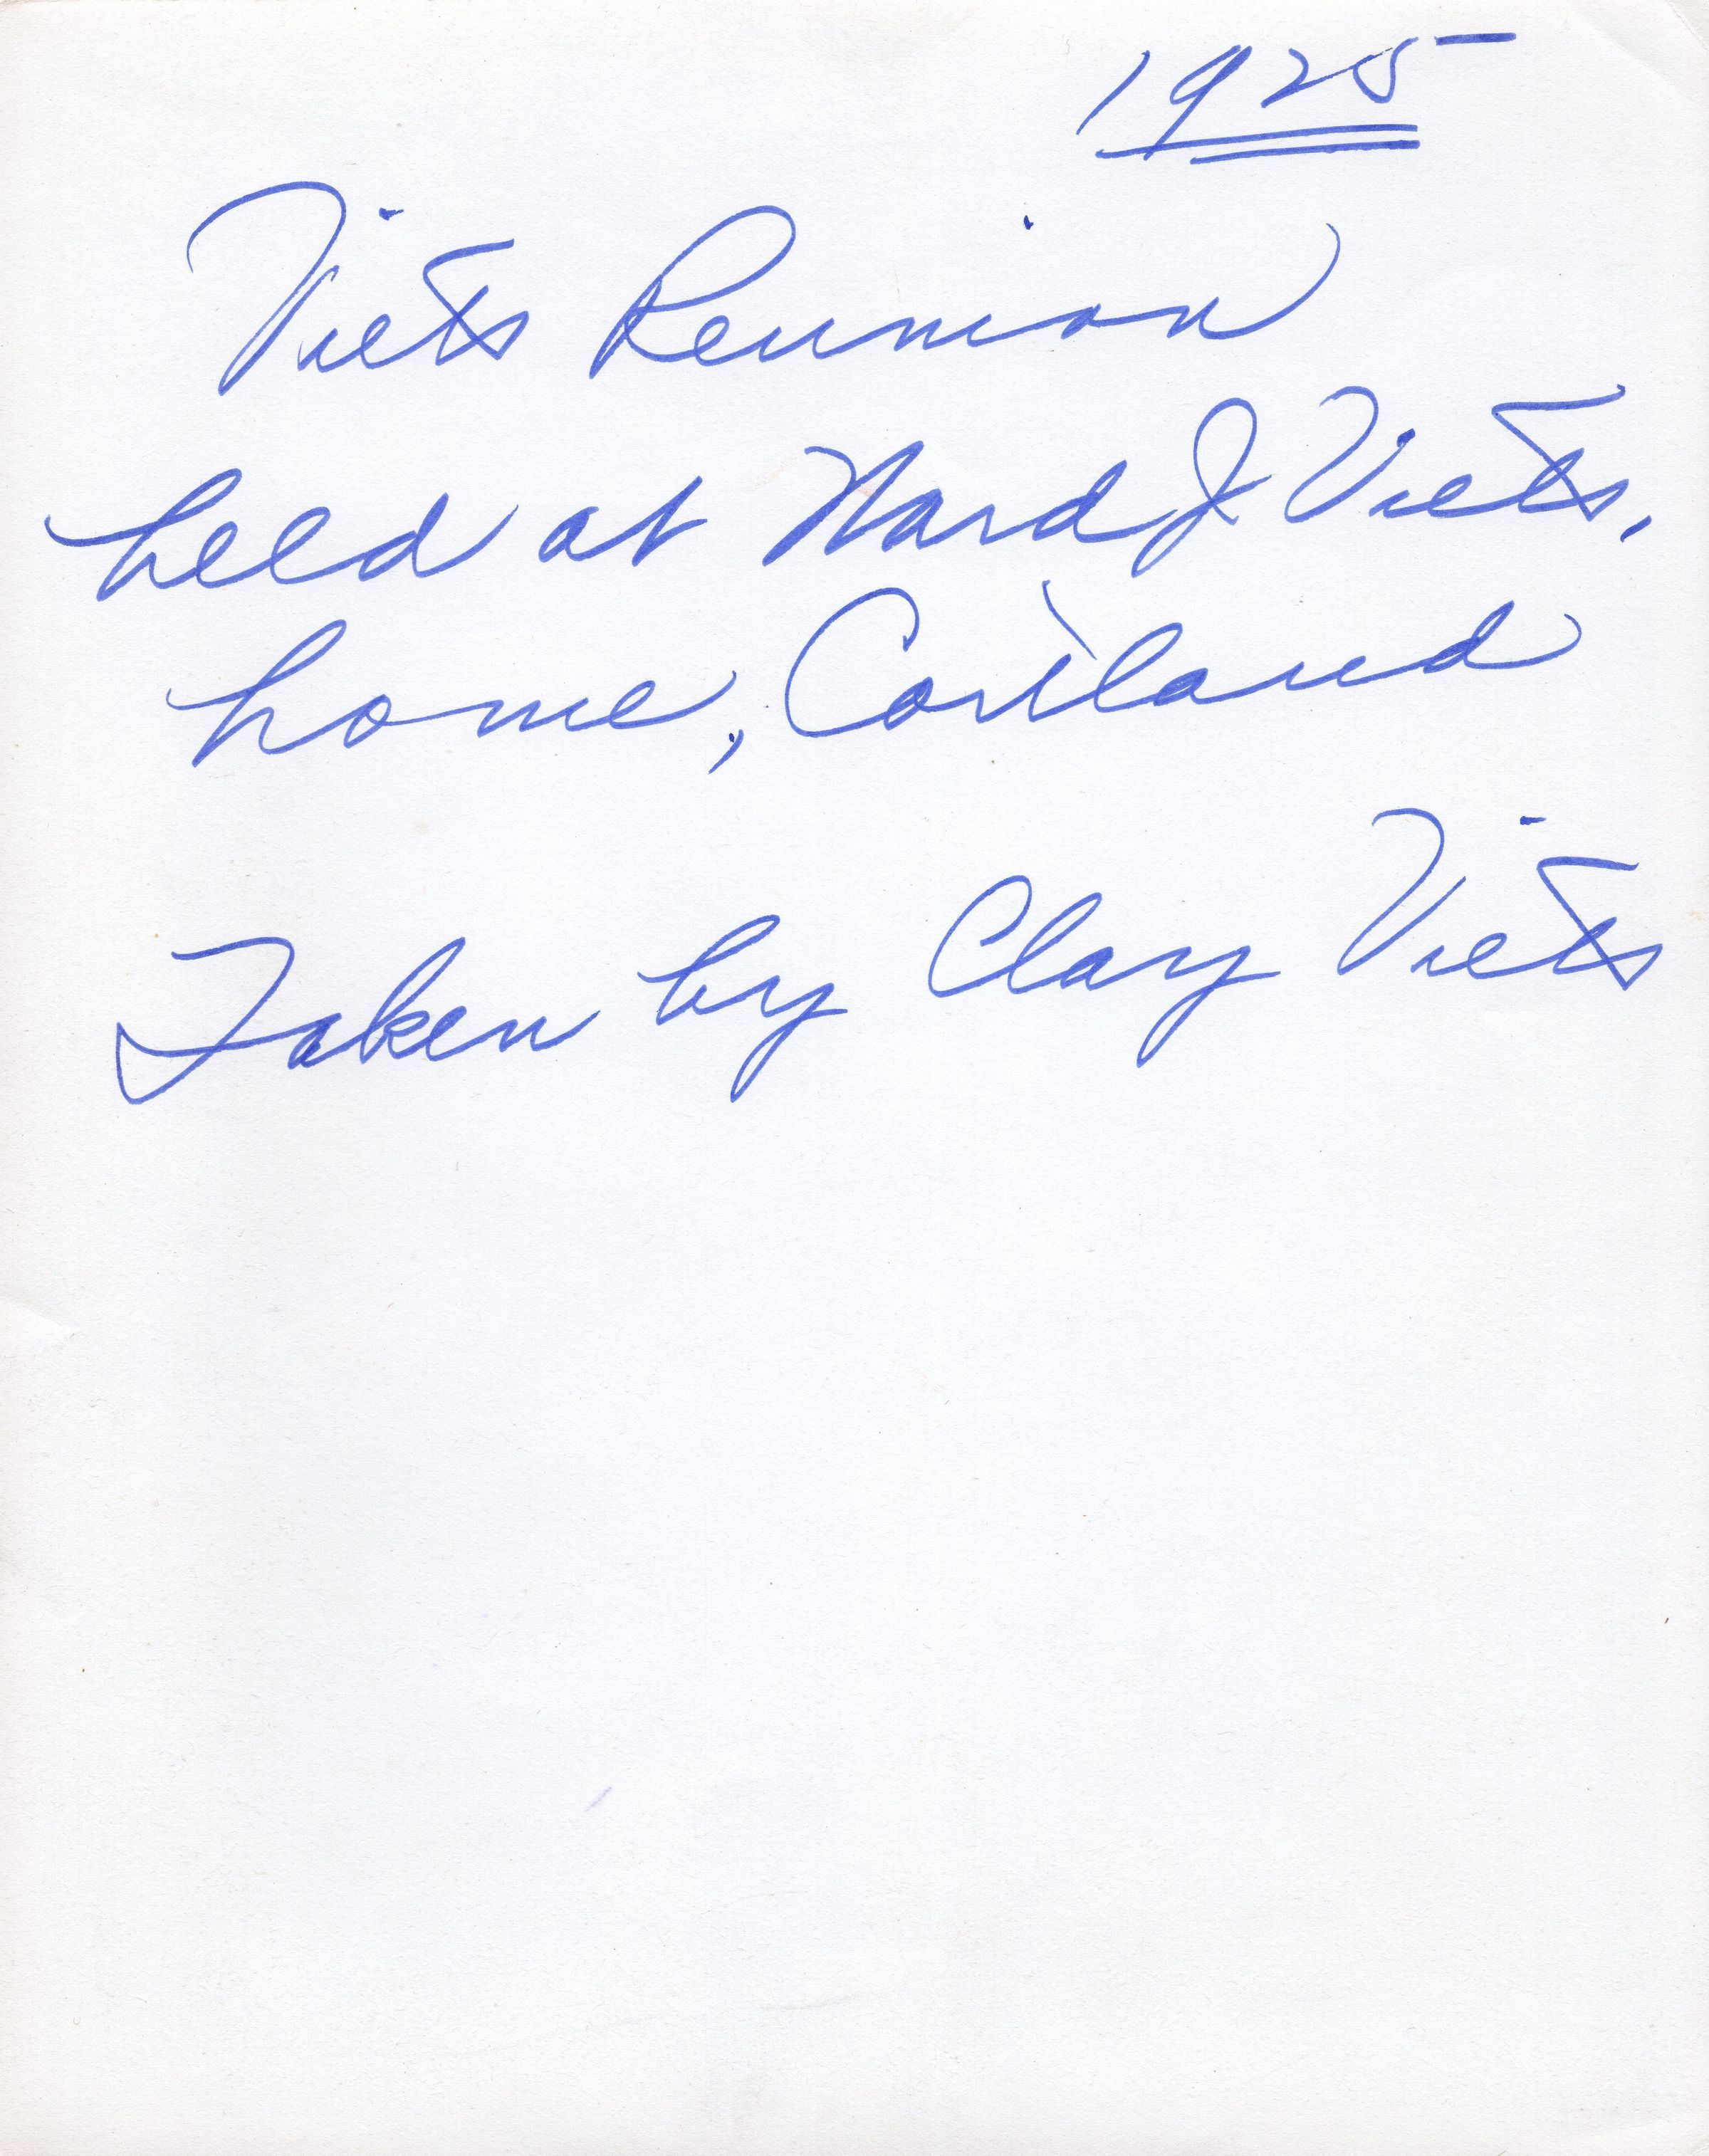 1925
Viets Reunion
held at Ward J Viets,
home, Cortland
Taken by Clay Viets